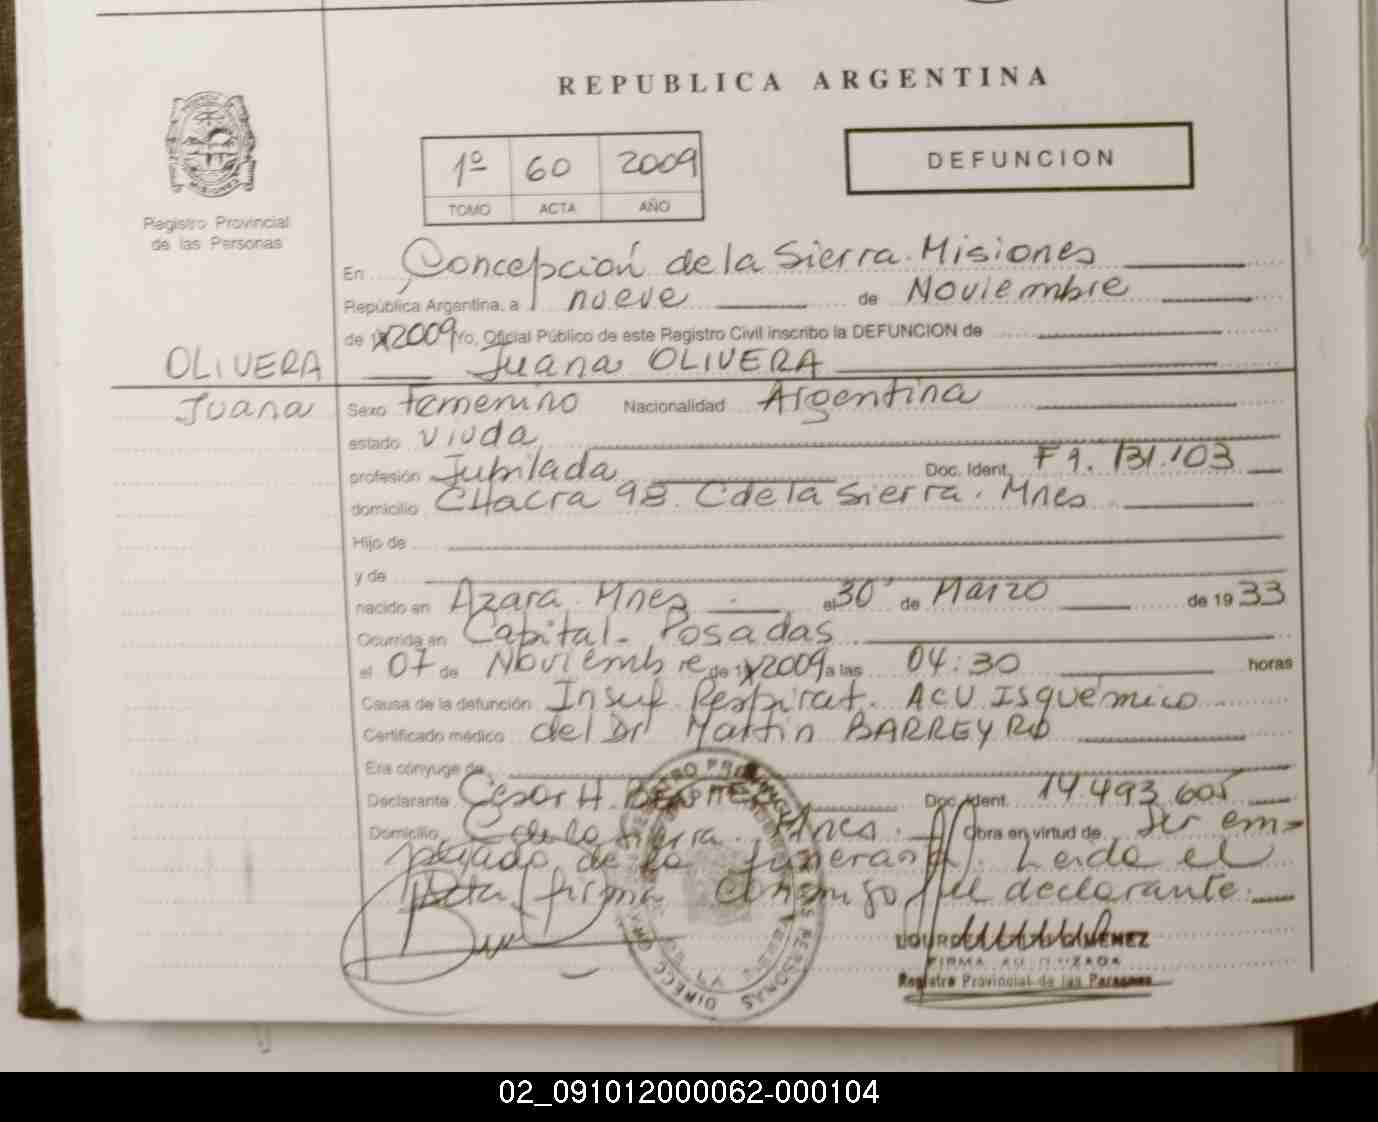 REPUBLICA ARGENTINA
1º 60 2009
TOMO ACTA AÑO
DEFUNCION
Registro Provincial
de las Personas
En Concepción de la Sierra. Misiones
República Argentina, a nueve de Noviembre
de 2009 Yo, Oficial Público de este Registro Civil inscribo la DEFUNCION de
OLIVERA Juana OLIVERA
Juana Sexo Femenino Nacionalidad Argentina
estado viuda
profesión Jubilada Doc. Ident. F 9.131.103
domicilio CHacra 98. C de la Sierra. Mnes
Hijo de
y de
nacido en Azara. Mnes el 30 de Marzo de 1933
Ocurrida en Capital - Posadas
el 07 de Noviembre de 2009 a las 04:30 horas
Causa de la defunción Insuf. Respirat. ACV Isquémico
Certificado médico del Dr Martin BARREYRO
Era cónyuge de
Declarante Cesar H. Doc. Ident. 14.493.605
Domicilio C de la Sierra. Mnes. Obra en virtud de ser em-
pleado de la funeraria. Leida el
Acta, firma conmigo el declarante.
FIRMA AUTORIZADA
Registro Provincial de las Personas
02_091012000062-000104